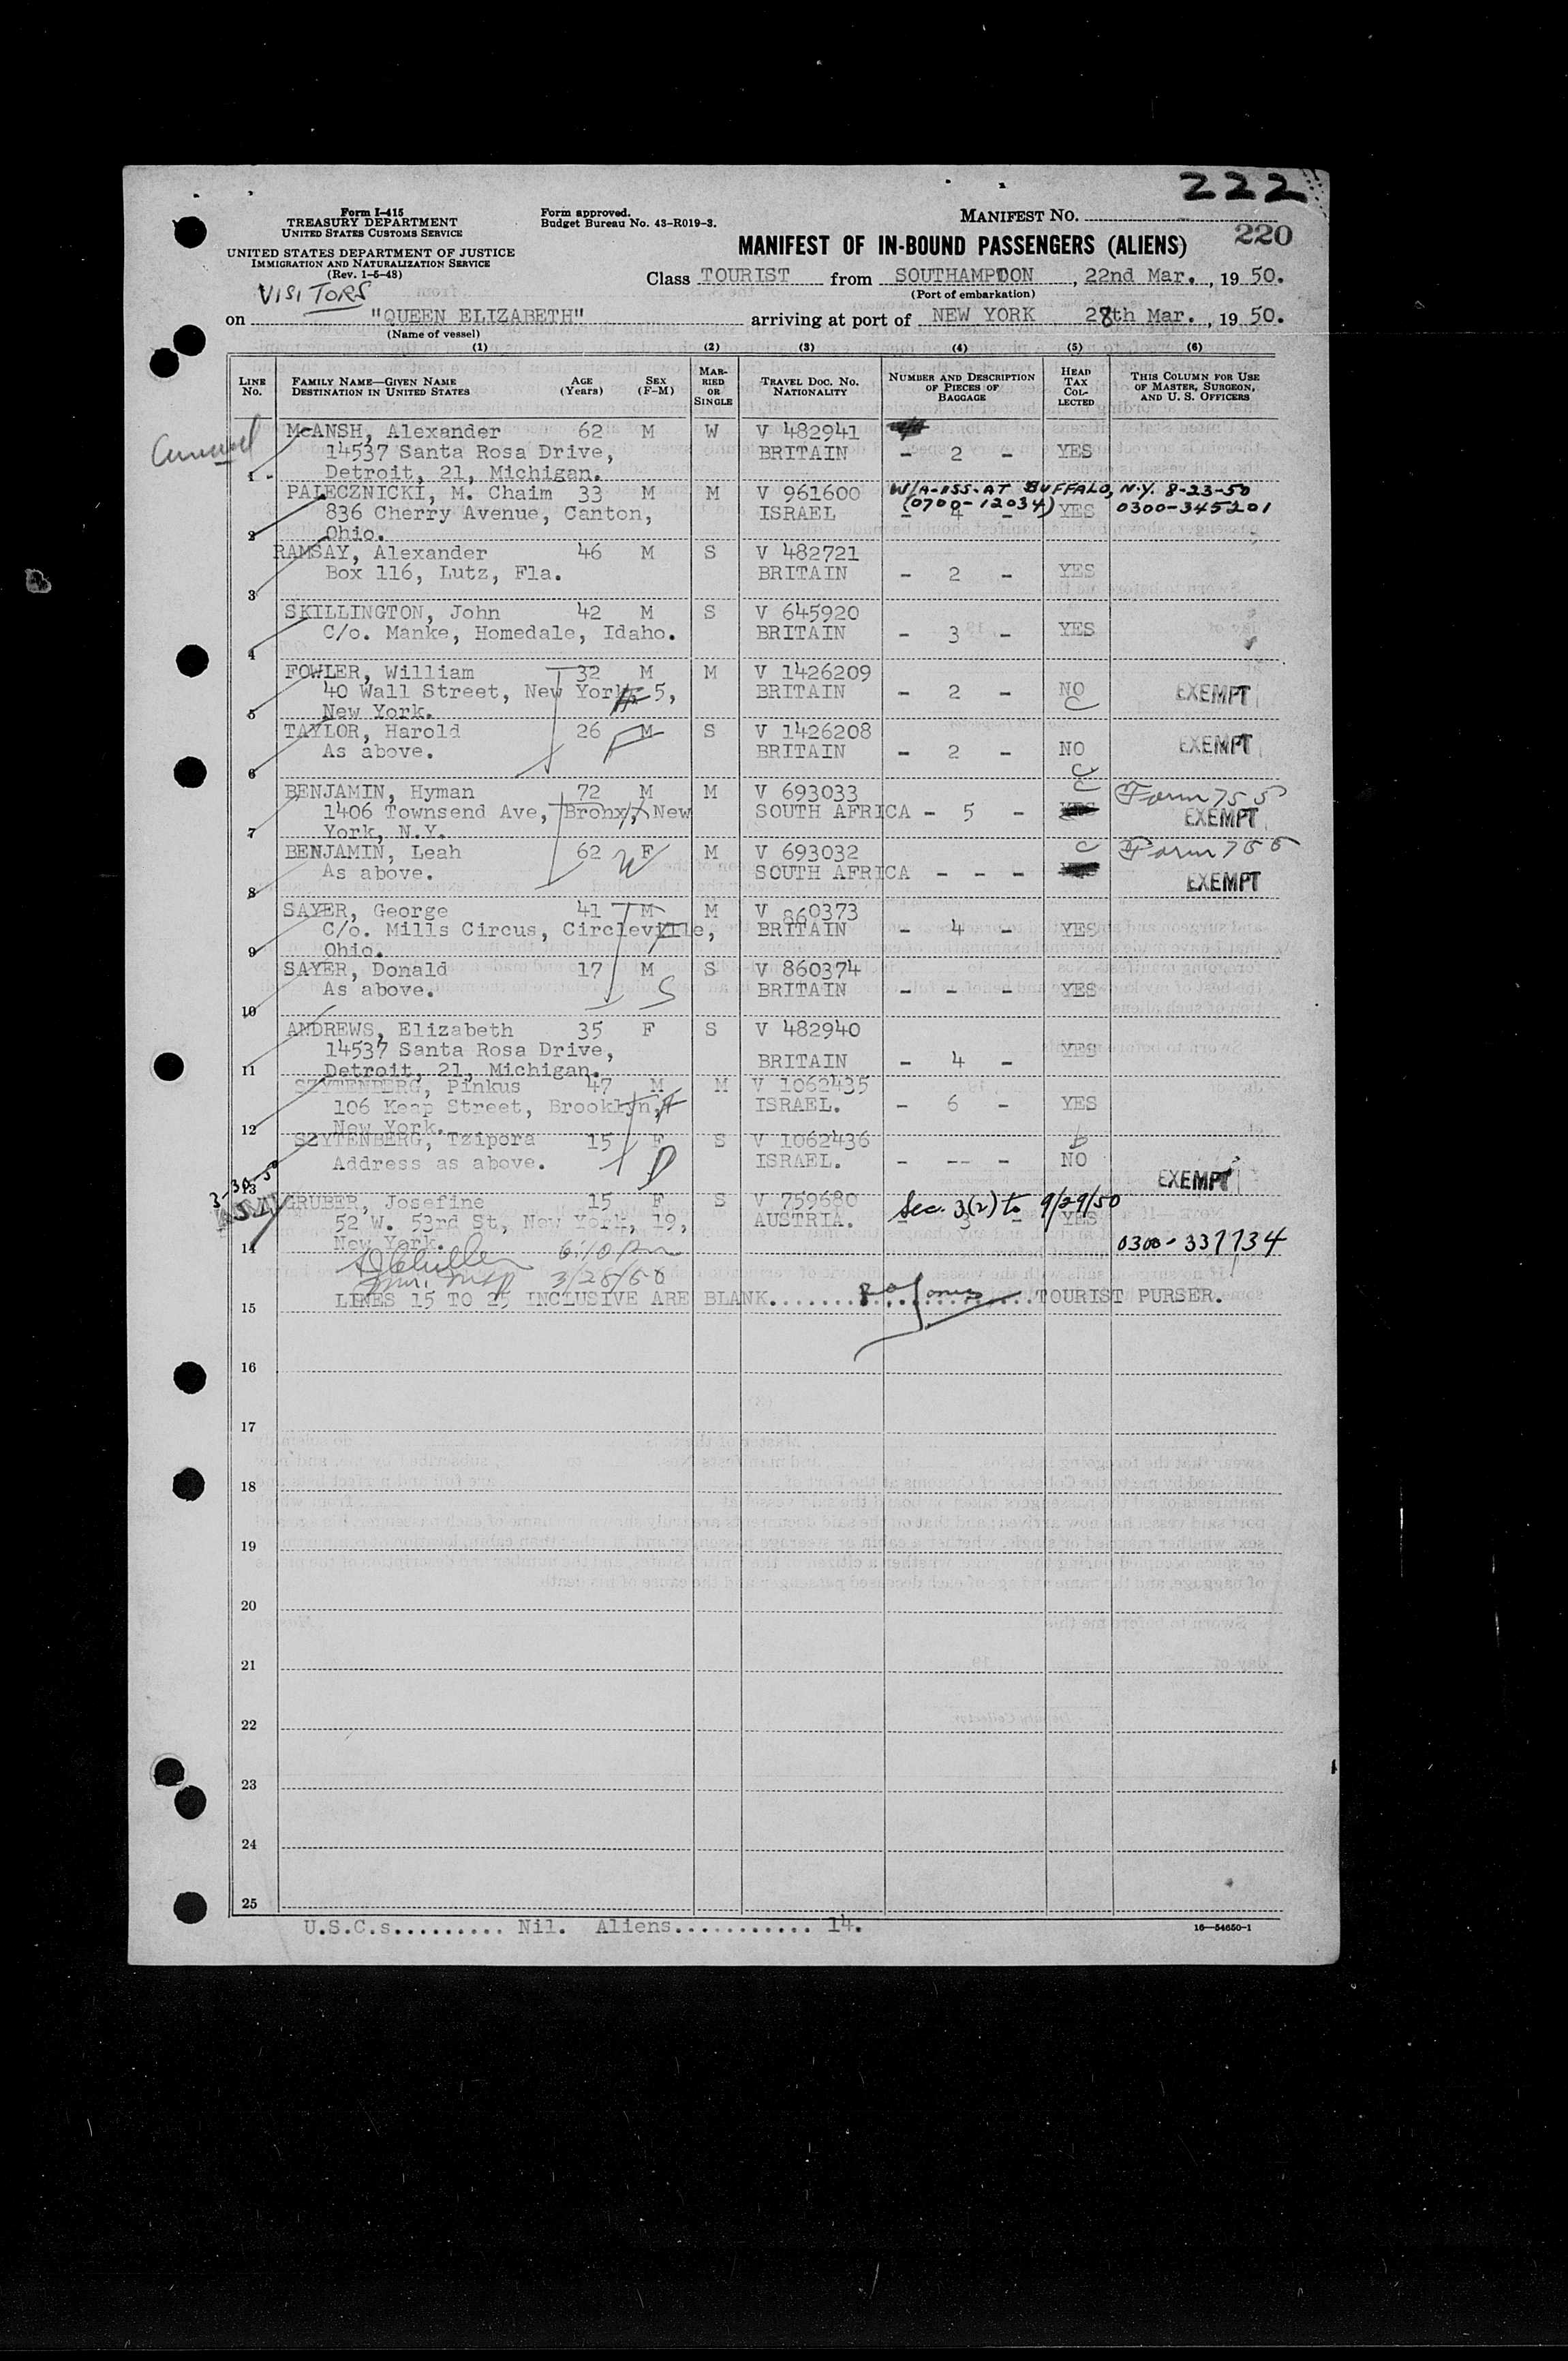 222
Form I-415
TREASURY DEPARTMENT
UNITED STATES CUSTOMS SERVICE
UNITED STATES DEPARTMENT OF JUSTICE
IMMIGRATION AND NATURALIZATION SERVICE
(Rev. 1-5-48)
Form approved.
Budget Bureau No. 43-R019-3.
MANIFEST NO.
220
MANIFEST OF IN-BOUND PASSENGERS (ALIENS)
VISITORS
Class TOURIST from SOUTHAMPTON , 22nd Mar. , 19 50.
(Port of embarkation)
on "QUEEN ELIZABETH" arriving at port of NEW YORK 28th Mar. , 19 50.
(Name of vessel)
(1) (2) (3) (4) (5) (6)
LINE NO. FAMILY NAME—GIVEN NAME DESTINATION IN UNITED STATES AGE (Years) SEX (F-M) MARRIED OR SINGLE TRAVEL DOC. NO. NATIONALITY NUMBER AND DESCRIPTION OF PIECES OF BAGGAGE HEAD TAX COLLECTED THIS COLUMN FOR USE OF MASTER, SURGEON, AND U. S. OFFICERS
McANSH, Alexander 62 M W V 482941
14537 Santa Rosa Drive, BRITAIN - 2 - YES
1 - Detroit, 21, Michigan.
PALECZNICKI, M. Chaim 33 M M V 961600 W/A-ISS-AT BUFFALO, N.Y. 8-23-50
836 Cherry Avenue, Canton, ISRAEL (0700-12034) - 4 - YES 0300-345201
2 Ohio.
RAMSAY, Alexander 46 M S V 482721
Box 116, Lutz, Fla. BRITAIN - 2 - YES
3
SKILLINGTON, John 42 M S V 645920
C/o. Manke, Homedale, Idaho. BRITAIN - 3 - YES
4
FOWLER, William 32 M M V 1426209
40 Wall Street, New York 5, BRITAIN - 2 - NO EXEMPT
5 New York. C
TAYLOR, Harold 26 M S V 1426208
As above. BRITAIN - 2 - NO EXEMPT
6 C
BENJAMIN, Hyman 72 M M V 693033 C Form 755
1406 Townsend Ave, Bronx, New SOUTH AFRICA - 5 - EXEMPT
7 York, N.Y.
BENJAMIN, Leah 62 F M V 693032 C Form 755
As above. SOUTH AFRICA - - - EXEMPT
8
SAYER, George 41 M M V 860373
C/o. Mills Circus, Circleville, BRITAIN - 4 - YES
9 Ohio.
SAYER, Donald 17 M S V 860374
As above. BRITAIN - - - YES
10 S
ANDREWS, Elizabeth 35 F S V 482940
14537 Santa Rosa Drive, BRITAIN - 4 - YES
11 Detroit, 21, Michigan.
SZYTENBERG, Pinkus 47 M M V 1062435
106 Keap Street, Brooklyn, ISRAEL. - 6 - YES
12 New York.
SZYTENBERG, Tzipora 15 F S V 1062436
Address as above. ISRAEL. - -- - NO
13 EXEMPT
3-30-50
GRUBER, Josefine 15 F S V 759680 Sec. 3(2) to 9/29/50
52 W. 53rd St, New York, 19, AUSTRIA. - 3 - YES
14 New York. 0300-337734
6:10 Pm
Imm. Insp 3/28/50
15 LINES 15 TO 25 INCLUSIVE ARE BLANK.......................TOURIST PURSER.
16
17
18
19
20
21
22
23
24
25
U.S.C.s......... Nil. Aliens........... 14.
16—54650-1